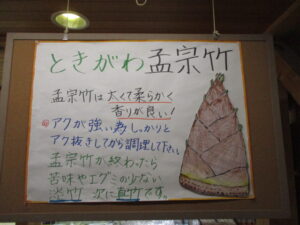 ときがわ孟宗竹
孟宗竹は太くて柔らかく
香りが良い!
アクが強い為しっかりと
アク抜きしてから調理して下さい
孟宗竹が終わったら
苦味やエグミが少ない
淡竹 次に真竹です。